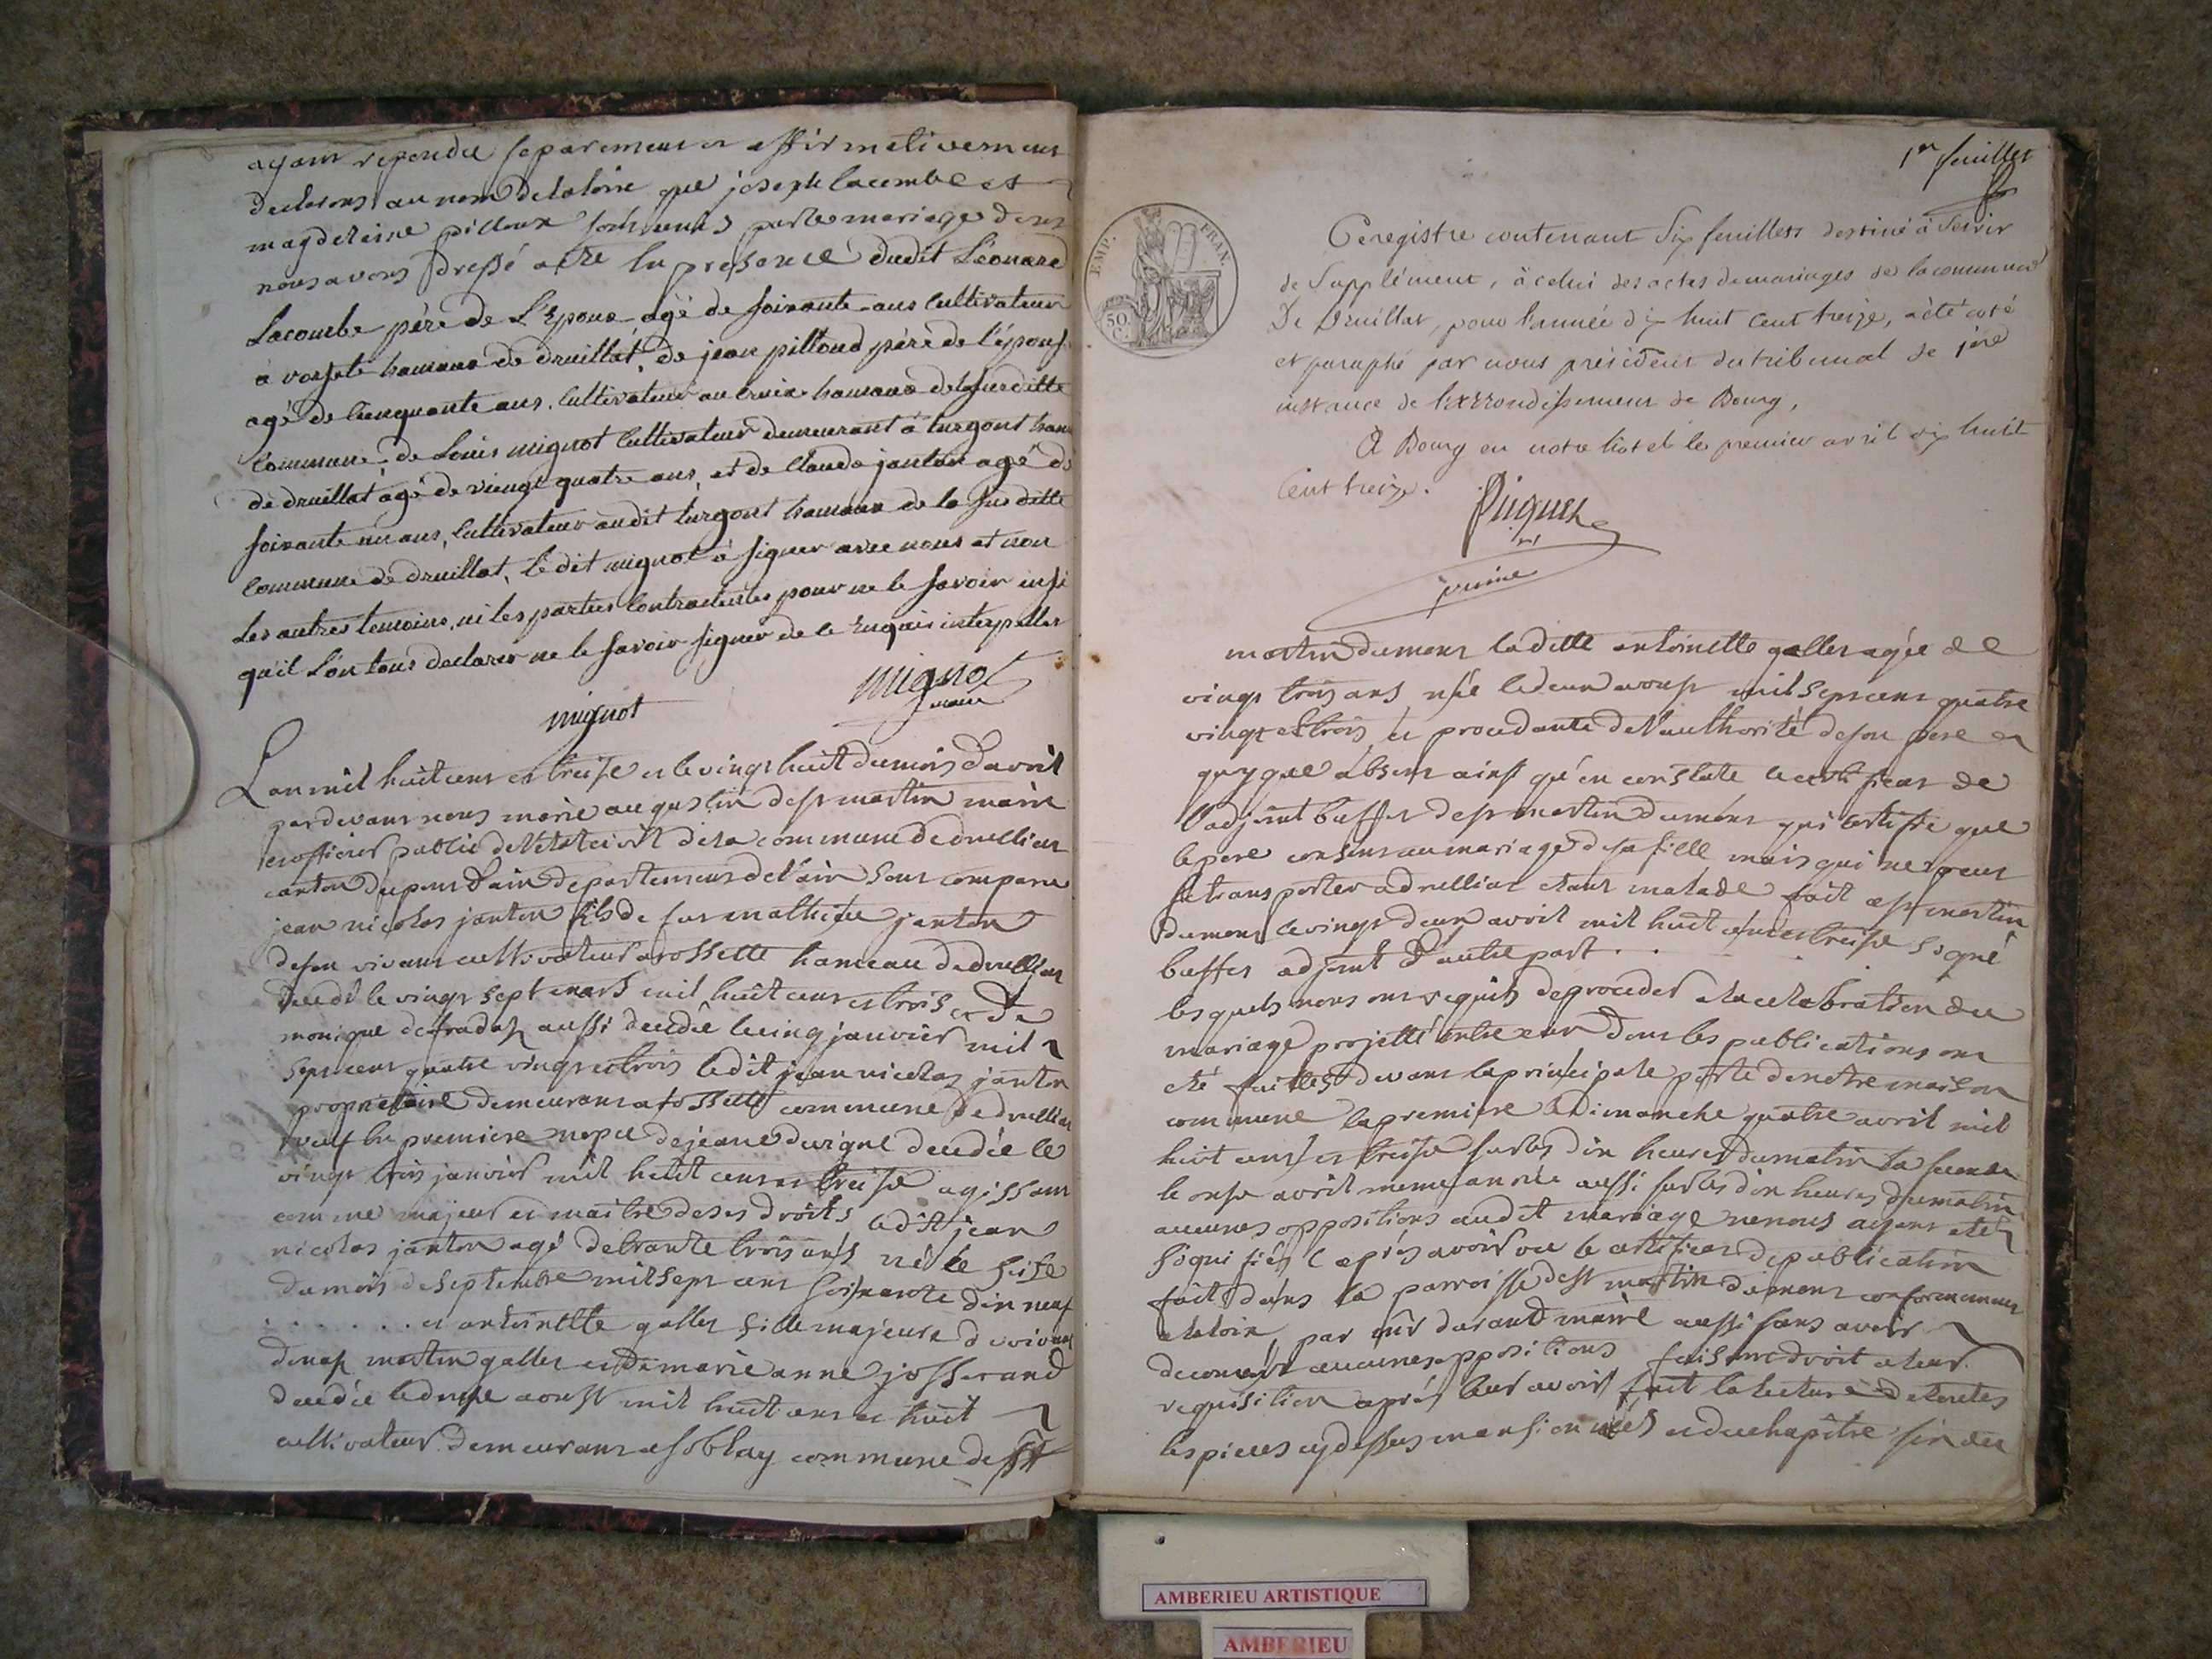 ayant repondu separement et affirmativement
declarons au nom de la loire que joseph lacombe et
magdeleine pilloux sont unis par le mariage de ce
nous avons dressé acte en presence dudit Léonard
Lacombe père de L'Epoux agé de soixante ans Cultivateur
à hamaux de druillat, de jean pilloud père de l'épouse
agé de Cinquante ans, Cultivateur au Croix hamaux de la susditte
Commune, de Louis mignot Cultivateur demeurant à turgont ham
de druillat agé de viengt quatre ans, et de Claude janton agé de
soixante un ans, Cultivateur audit turgont hamaux de la susditte
Commune de druillat, le dit mignot à signer avec nous et non
Les autres temoins, ni les parties Contractantes pour ne le savoir insi
qu'il L'on tous declarer ne le savoir signer de le Enquis interpeller
mignot
mignot
maire
L'an mil huit cens et treise et le vingt huit du mois d'avril
pardevant nous marie augustin de st martin maire
et officier public de l'état civil de la commune de druilliat
canton du pont d'ain departement de l'ain sont comparu
jean nicolas janton fils de feu mathieu janton
de son vivant cultivateur a rossette hameau de druilliat
decedé le vingt sept mars mil huit cens et trois et de
monique aussi decedée le cinq janvier mil
sept cens quatre vingt et trois ledit jean nicolas janton
proprietaire demeurant a rossette commune de druilliat
veuf en premiere nopce de jeane decedée le
vingt trois janvier mil huit cens et treise agissant
comme majeur et maitre de ses droits ledit jean
nicolas janton agé de trante trois ans né le seise
du mois de septembre mil sept cens soixante dix neuf
. . . . . . . et antoinette gallet fille majeure de vivant
martin gallet et de marie anne josserand
decedée le aoust mil huit cens et huit
cultivateur demeurant a soblay commune de st
1er feuillet
EMP. FRAN.
50 C.
Ce registre contenant Six feuillets destiné à servir
de Supplément, à celui des actes de mariages de la commune
De Druillat, pour l'année dix huit Cent treize, a été coté
et paraphé par nous président du tribunal de 1ère
instance de l'arrondissement de Bourg,
A Bourg en notre hotel le premier avril dix huit
Cent treize.
martin du mont laditte antoinette gallet agée de
vingt trois ans née le aoust mil sept cens quatre
vingt et trois et procedante de l'authorité de son pere
quoyque absent ainsi qu'en constate le certificat de
l'adjoint buffet de st martin du mont qui certifie que
le pere consens au mariage de sa fille mais qui ne peut
se transporter a druilliat etant malade fait a st martin
du mont le vingt deux avril mil huit cens et treise signé
buffet adjoint d'autre part . . . .
lesquels nous ont requis de proceder a la celebration du
mariage projetté entre eux dont les publications ont
eté faittes devant la principale porte de notre maison
commune la premiere le dimanche quatre avril mil
huit cens et treise sur les dix heures du matin la seconde
le onse avril meme année aussi sur les dix heures du matin
aucunes oppositions audit mariage ne nous ayant eté
signifiés et apres avoir vu le certificat de publication
fait dans la parroisse de st martin du mont conformement
a la loix par mr durand maire aussi sans avoir
decouvert aucunes oppositions faisant droit a leur
requisition après leur avoir fait la lecture de toutes
les pieces cy dessus mansionnées et du chapitre six du